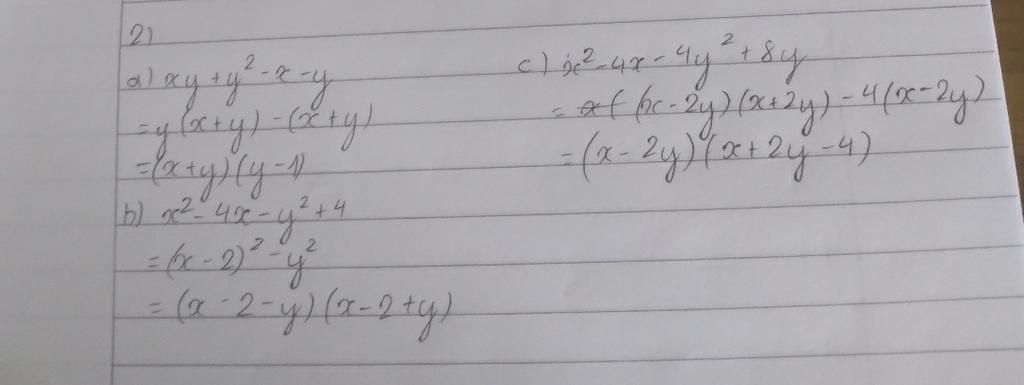 2)
a) xy + y² - x - y
= y(x+y) - (x+y)
= (x+y)(y-1)
b) x² - 4x - y² + 4
= (x-2)² - y²
= (x-2-y)(x-2+y)
c) x² - 4x - 4y² + 8y
= (x-2y)(x+2y) - 4(x-2y)
= (x-2y)(x+2y-4)